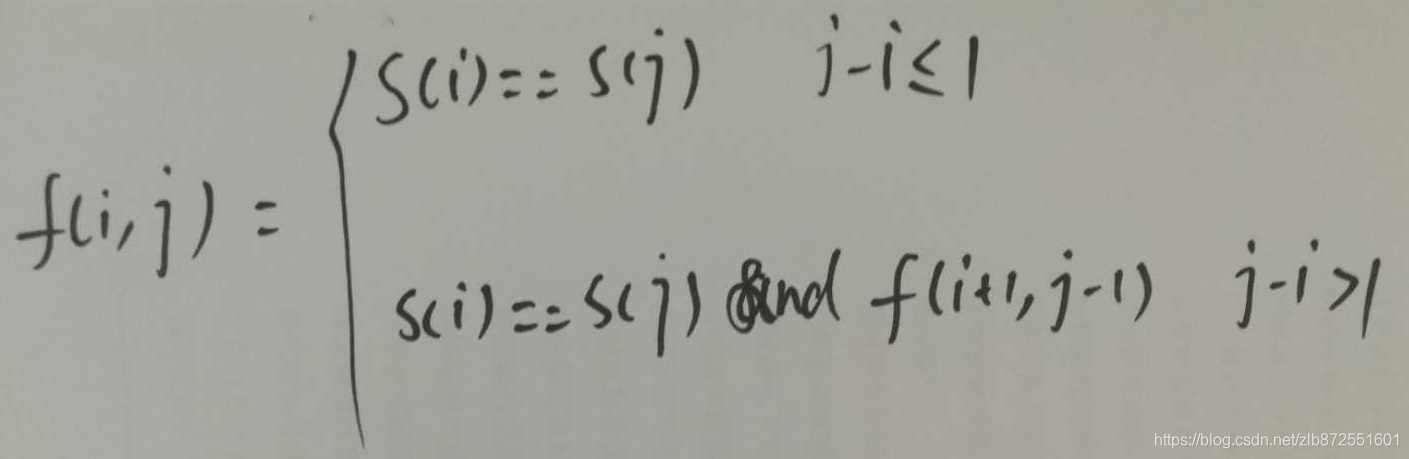 S(i)==S(j) j-i≤1
f(i,j)=
S(i)==S(j) and f(i+1,j-1) j-i>1
https://blog.csdn.net/zlb872551601